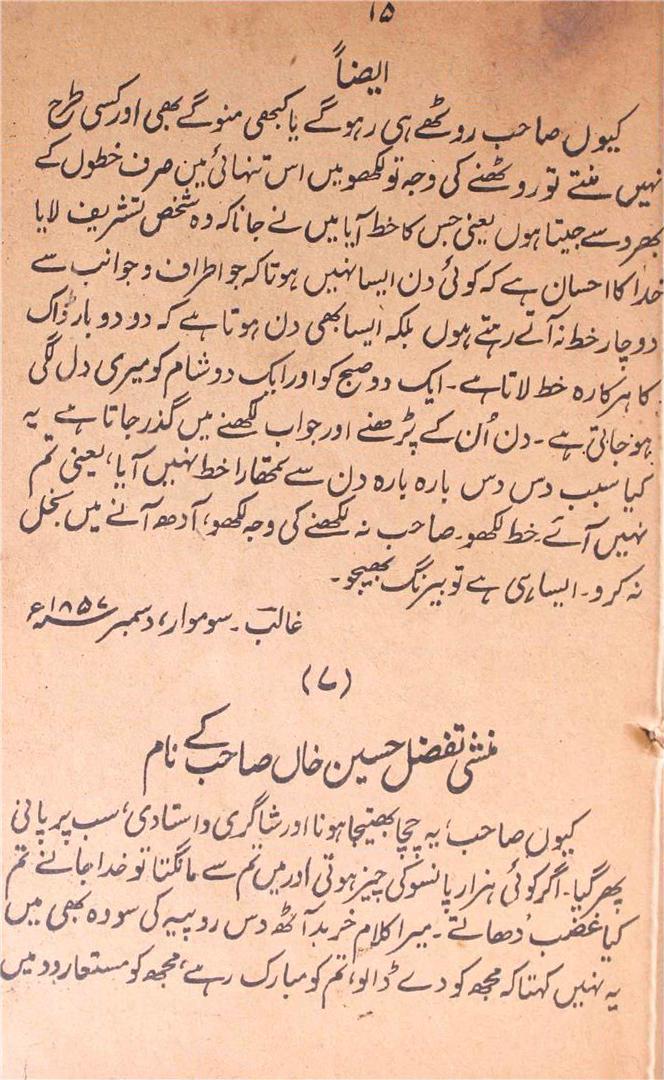 ۱۵
ایضاً
کیوں صاحب روٹھے ہی رہوگے یا کبھی منوگے بھی اور کسی طرح
نہیں منتے تو روٹھنے کی وجہ تو لکھو میں اس تنہائی میں صرف خطوں کے
بھروسے جیتا ہوں یعنی جس کا خط آیا میں نے جانا کہ وہ شخص تشریف لایا
خدا کا احسان ہے کہ کوئی دن ایسا نہیں ہوتا کہ جو اطراف و جوانب سے
دو چار خط نہ آتے رہتے ہوں بلکہ ایسا بھی دن ہوتا ہے کہ دو دو بار ڈاک
کا ہرکارہ خط لاتا ہے۔ ایک دو صبح کو اور ایک دو شام کو میری دل لگی
ہوجاتی ہے۔ دن اُن کے پڑھنے اور جواب لکھنے میں گذر جاتا ہے یہ
کیا سبب دس دس بارہ بارہ دن سے تمھارا خط نہیں آیا، یعنی تم
نہیں آئے۔ خط لکھو۔ صاحب نہ لکھنے کی وجہ لکھو، آدھ آنے میں بخل
نہ کرو۔ ایسا ہی ہے تو بیرنگ بھیجو۔
غالب۔ سوموار، دسمبر ۱۸۵۷ء
(۷)
منشی تفضل حسین خاں صاحب کے نام
کیوں صاحب، یہ چچا بھتیجا ہونا اور شاگری و استادی، سب پر پانی
پھر گیا۔ اگر کوئی ہزار پانسو کی چیز ہوتی اور میں تم سے مانگتا تو خدا جانے تم
کیا غضب ڈھاتے۔ میرا کلام خرید آٹھ دس روپیہ کی سو وہ بھی میں
یہ نہیں کہتا کہ مجھ کو دے ڈالو، تم کو مبارک رہے، مجھ کو مستعار دو میں